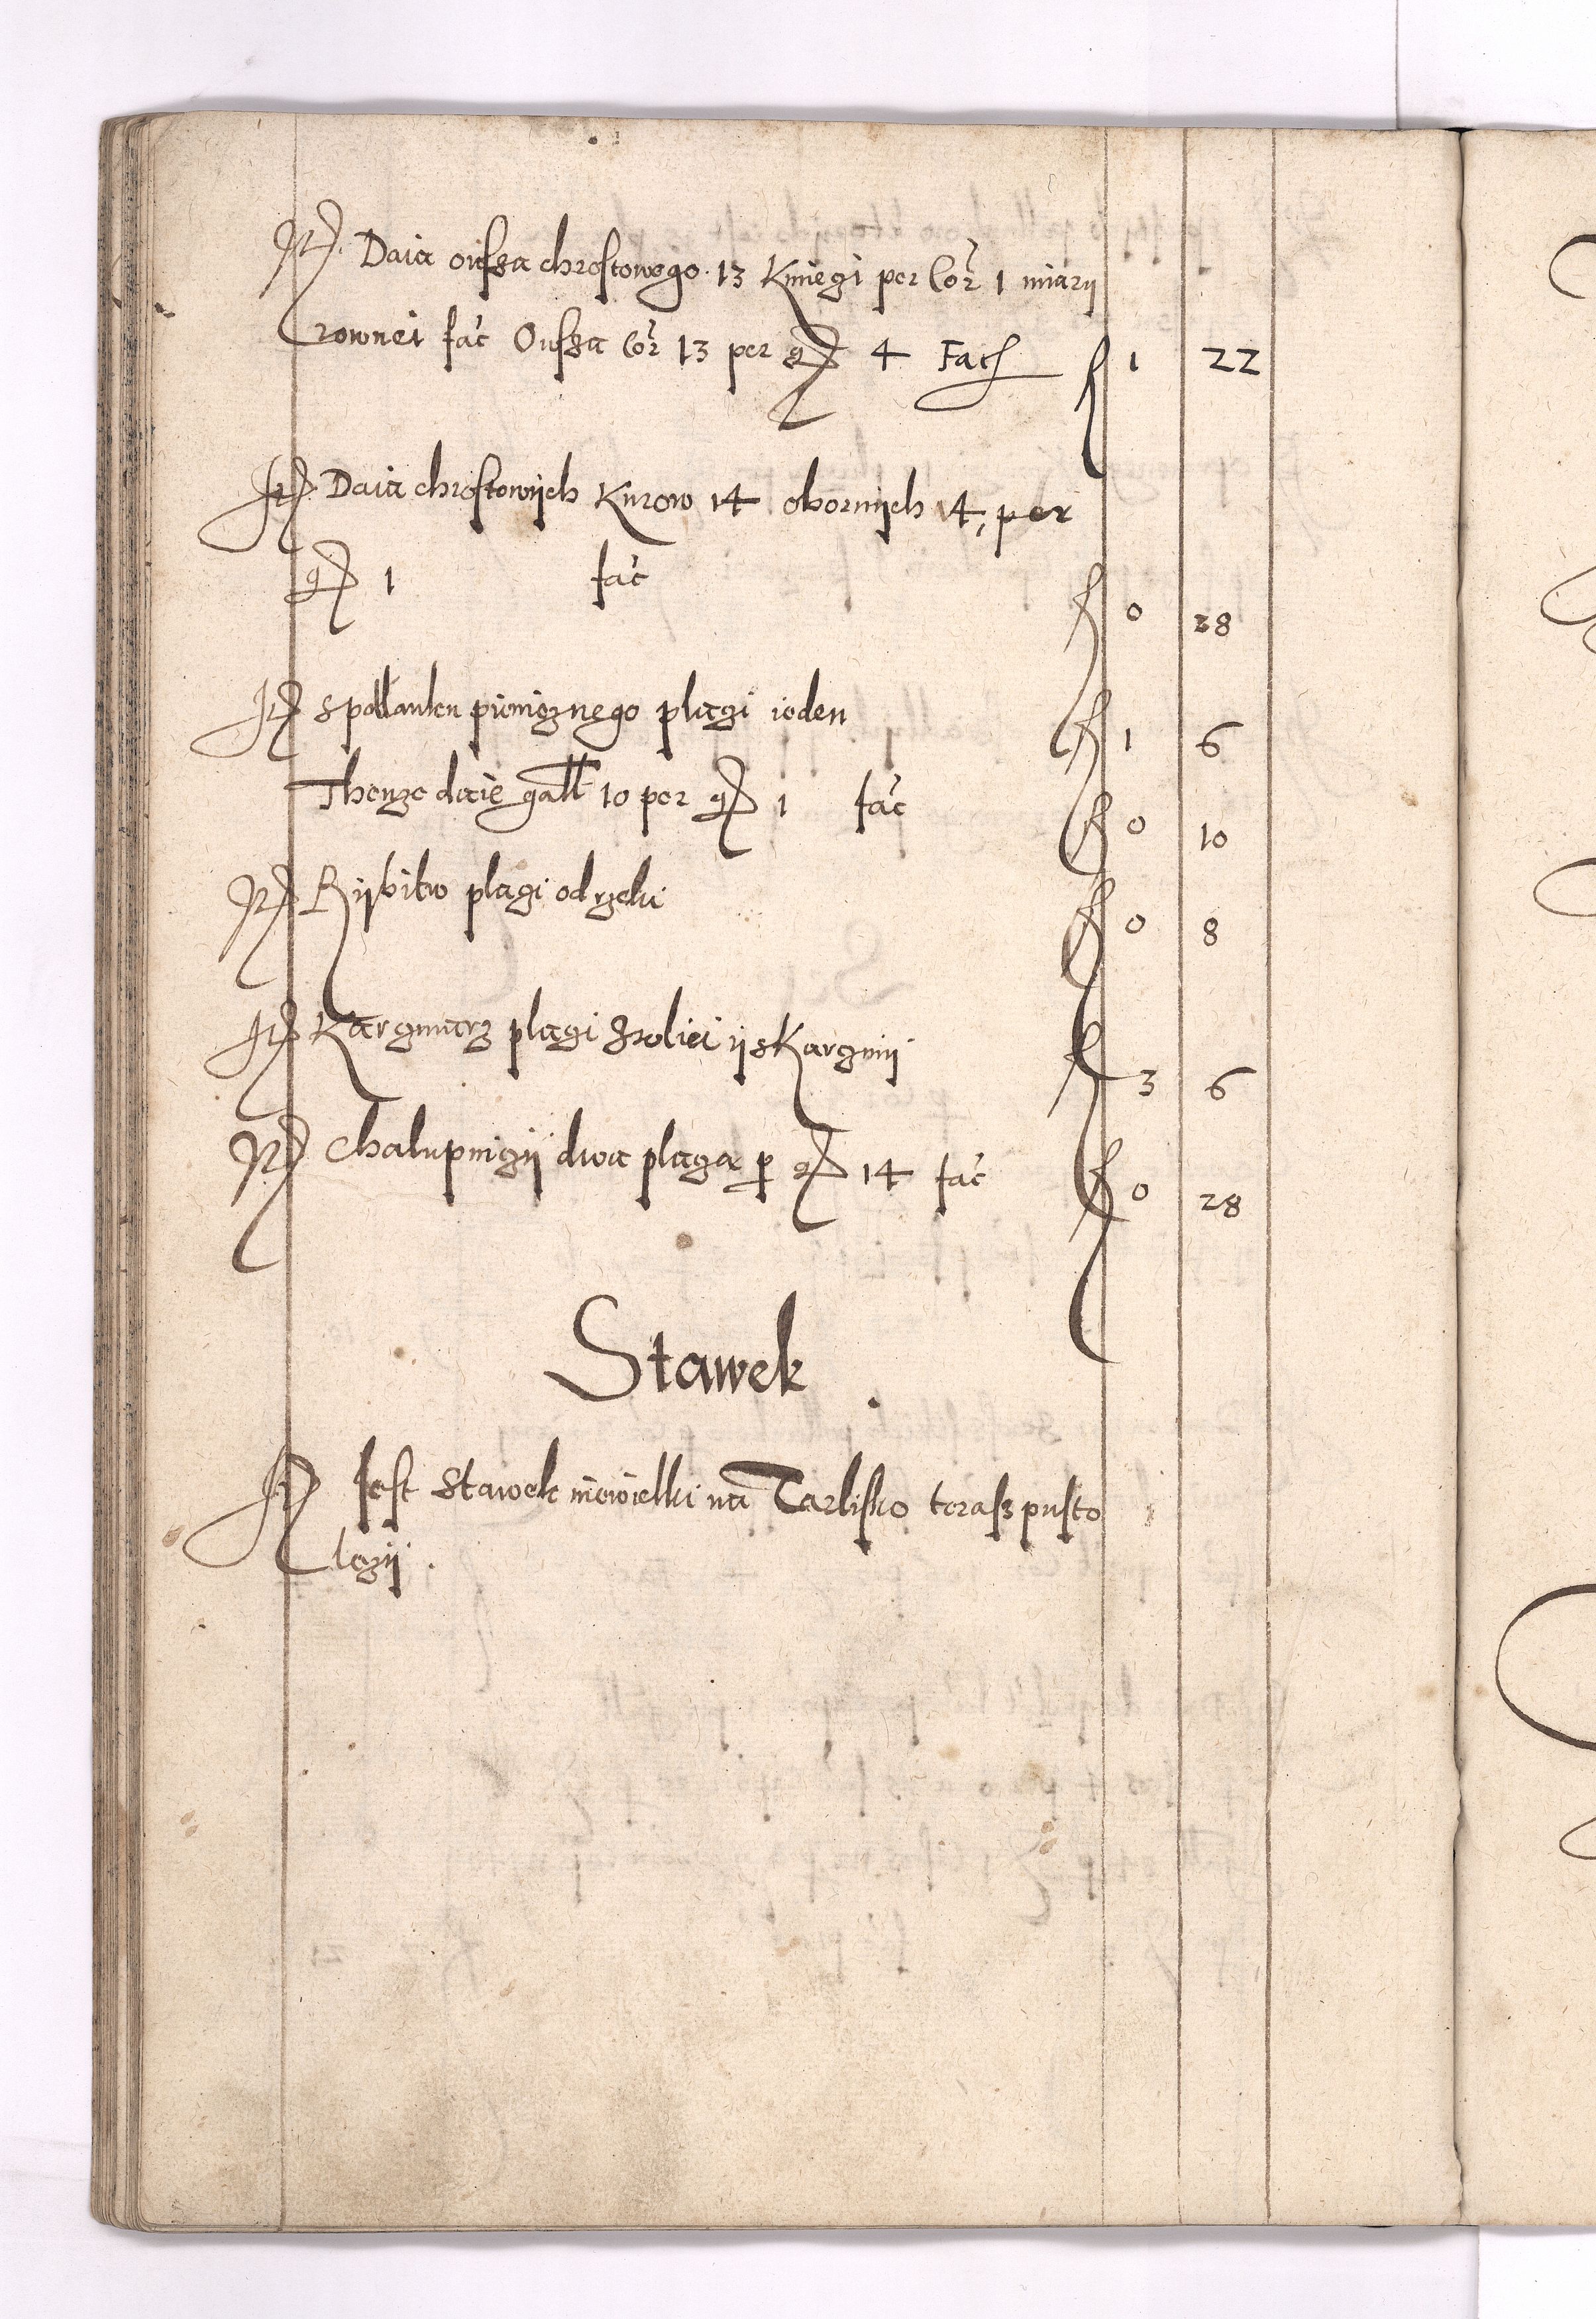 It Daia owssa chrostowego 13 Kmiegi per Cor 1 miary
rownei fac Owssa Cor 13 per g 4 Facit f 1 22
It Daia chrostowych Kurow 14 obornych 14, per
g 1 fac f 0 28
It s pollanken pienięznego płaczi ieden f 1 6
Thenze daie gall 10 per g 1 fac f 0 10
It Rybitw płaczi od rzeki f 0 8
It Karczmarz płaczi z rolei y s Karczmy f 3 6
It Chalupniczy dwa płacza p g 14 fac f 0 28
Stawek
It Jest Stawek niewielki na Tarlisko terasz pusto
lezy.